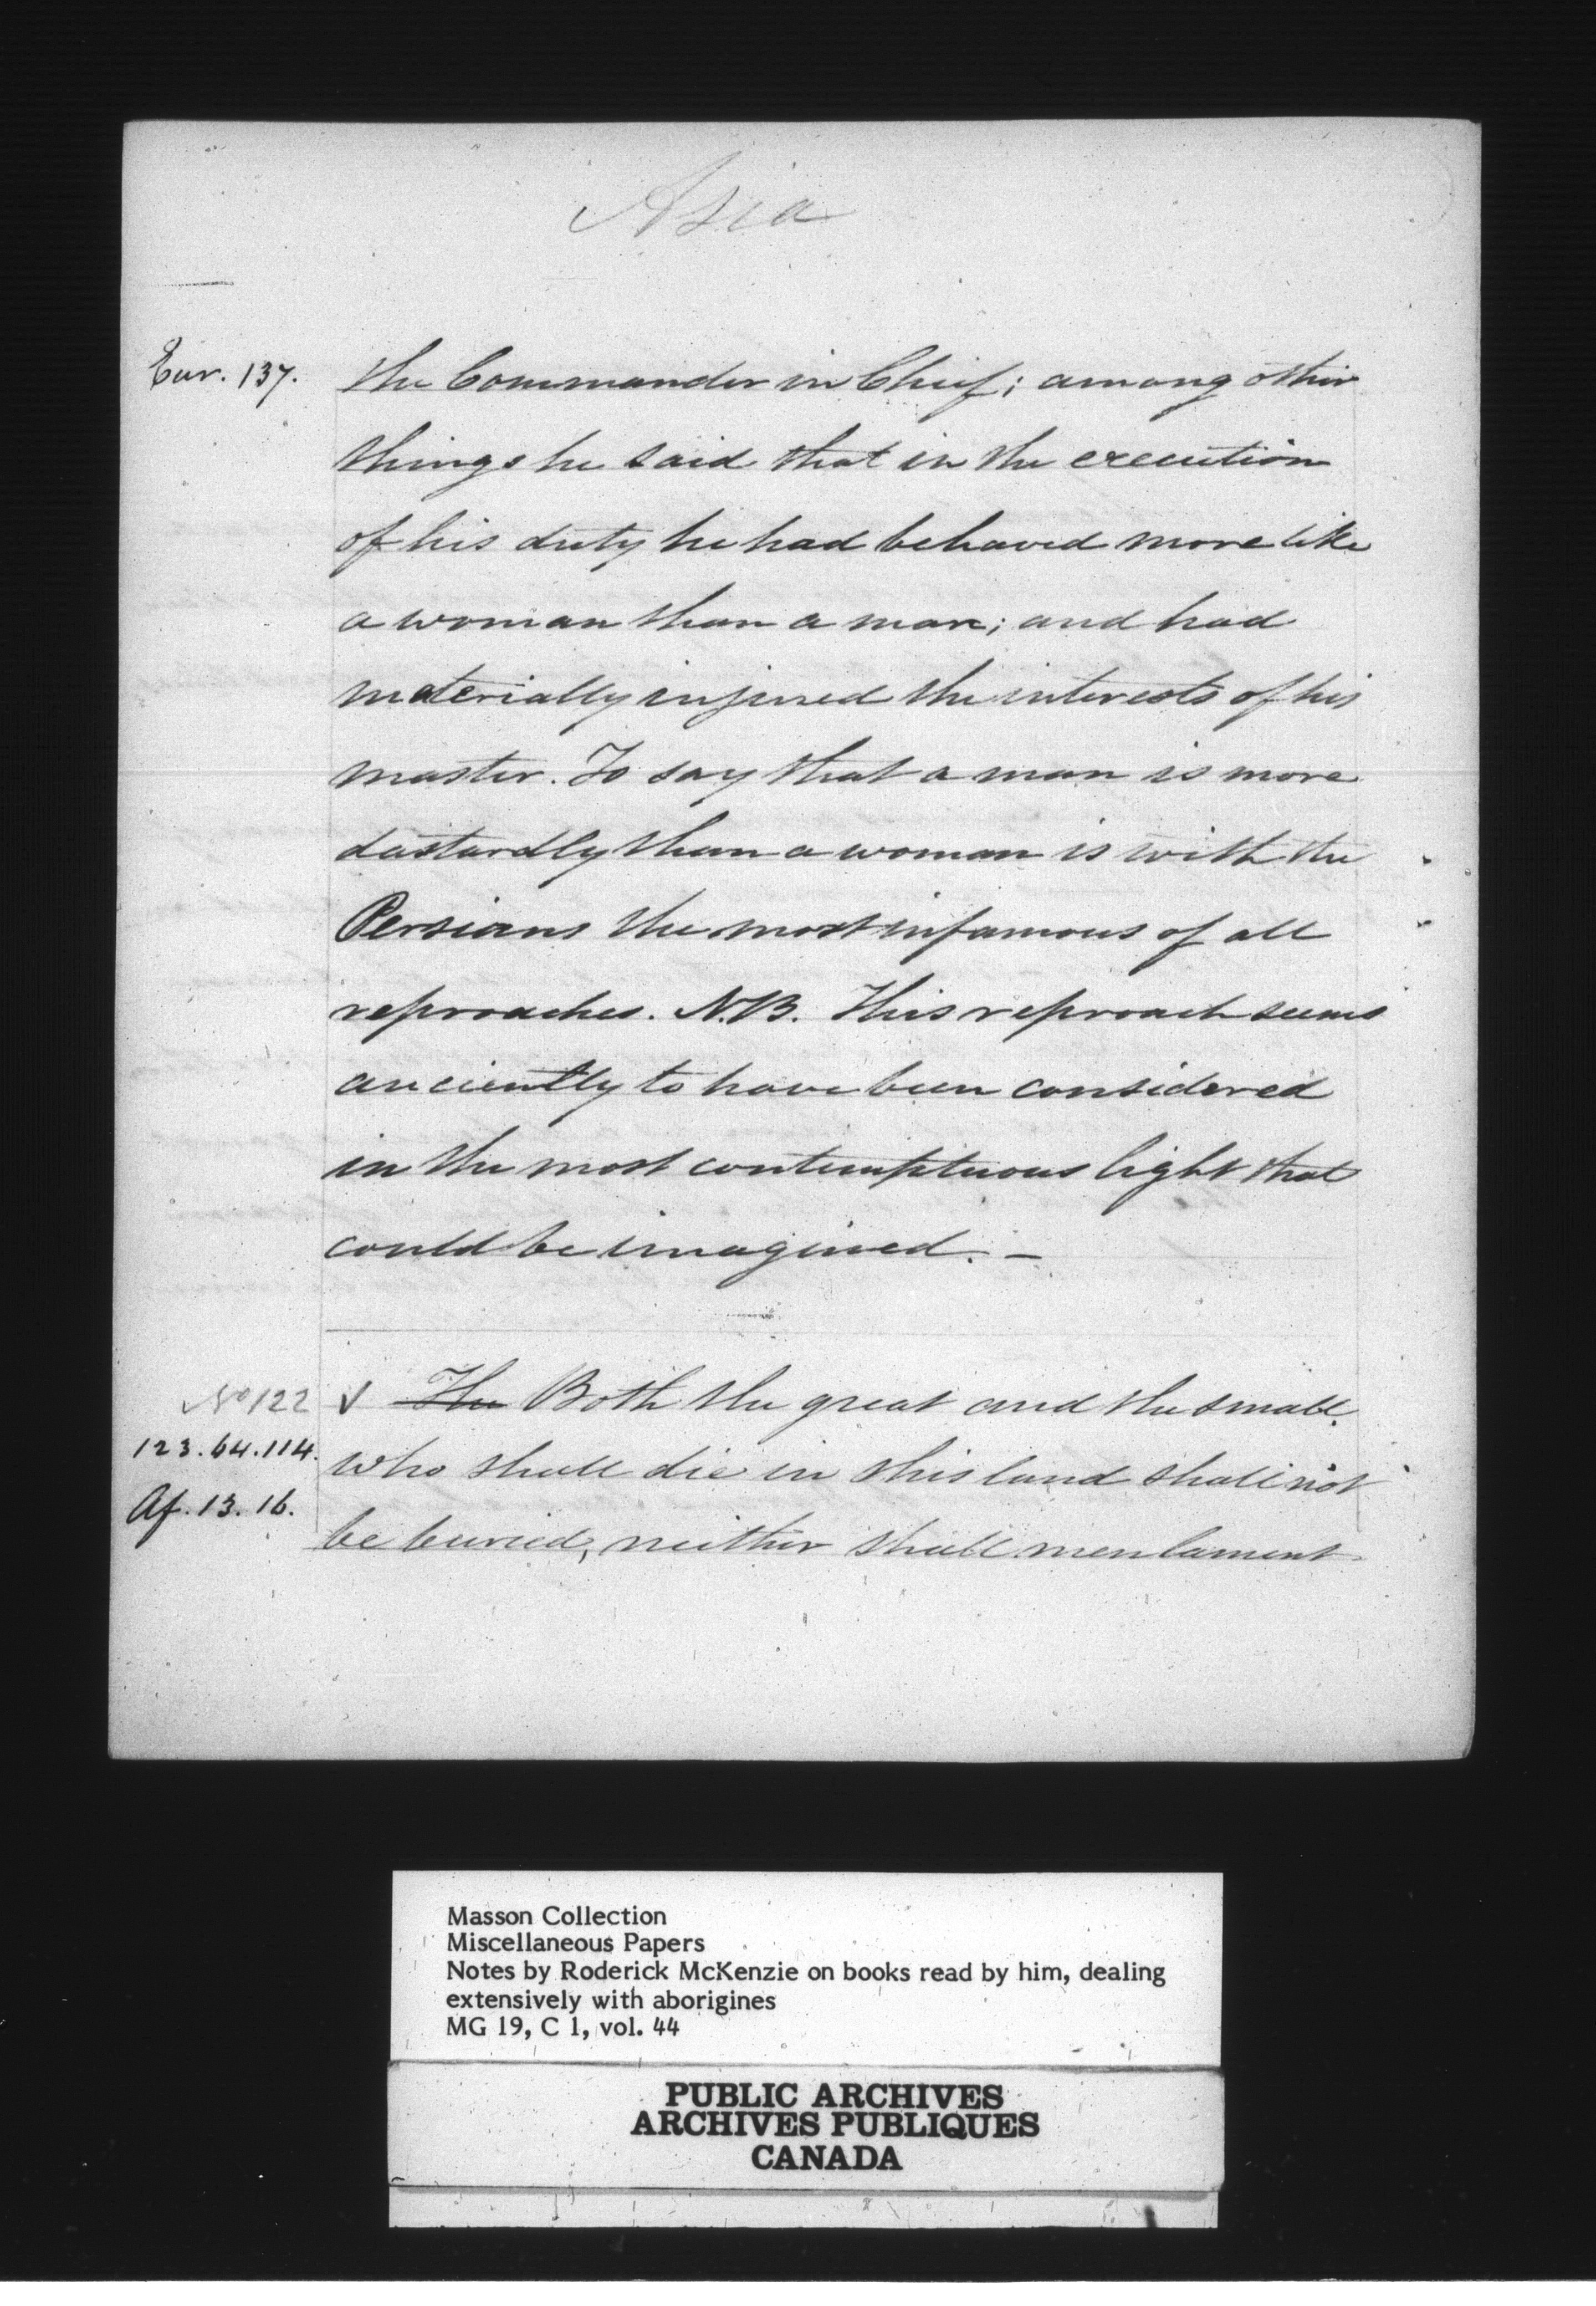 Asia
Eur. 137. the Commander in Chief; among other
things he said that in the execution
of his duty he had behaved more like
a woman than a man; and had
materially injured the interests of his
master. To say that a man is more
dastardly than a woman is with the
Persians the most infamous of all
reproaches. N.B. This reproach seems
anciently to have been considered
in the most contemptuous light that
could be imagined. —
No 122 √ The Both the great and the small
123.64.114. who shall die in this land shall not
Af. 13. 16. be buried, neither shall men lament
Masson Collection
Miscellaneous Papers
Notes by Roderick McKenzie on books read by him, dealing
extensively with aborigines
MG 19, C 1, vol. 44
PUBLIC ARCHIVES
ARCHIVES PUBLIQUES
CANADA